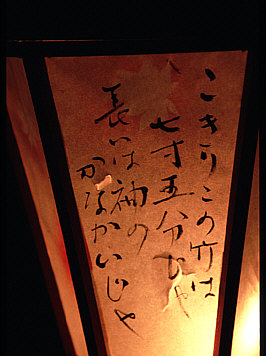 こきりこの竹は
七寸五分ぢゃ
長いは袖の
かなかいじゃ